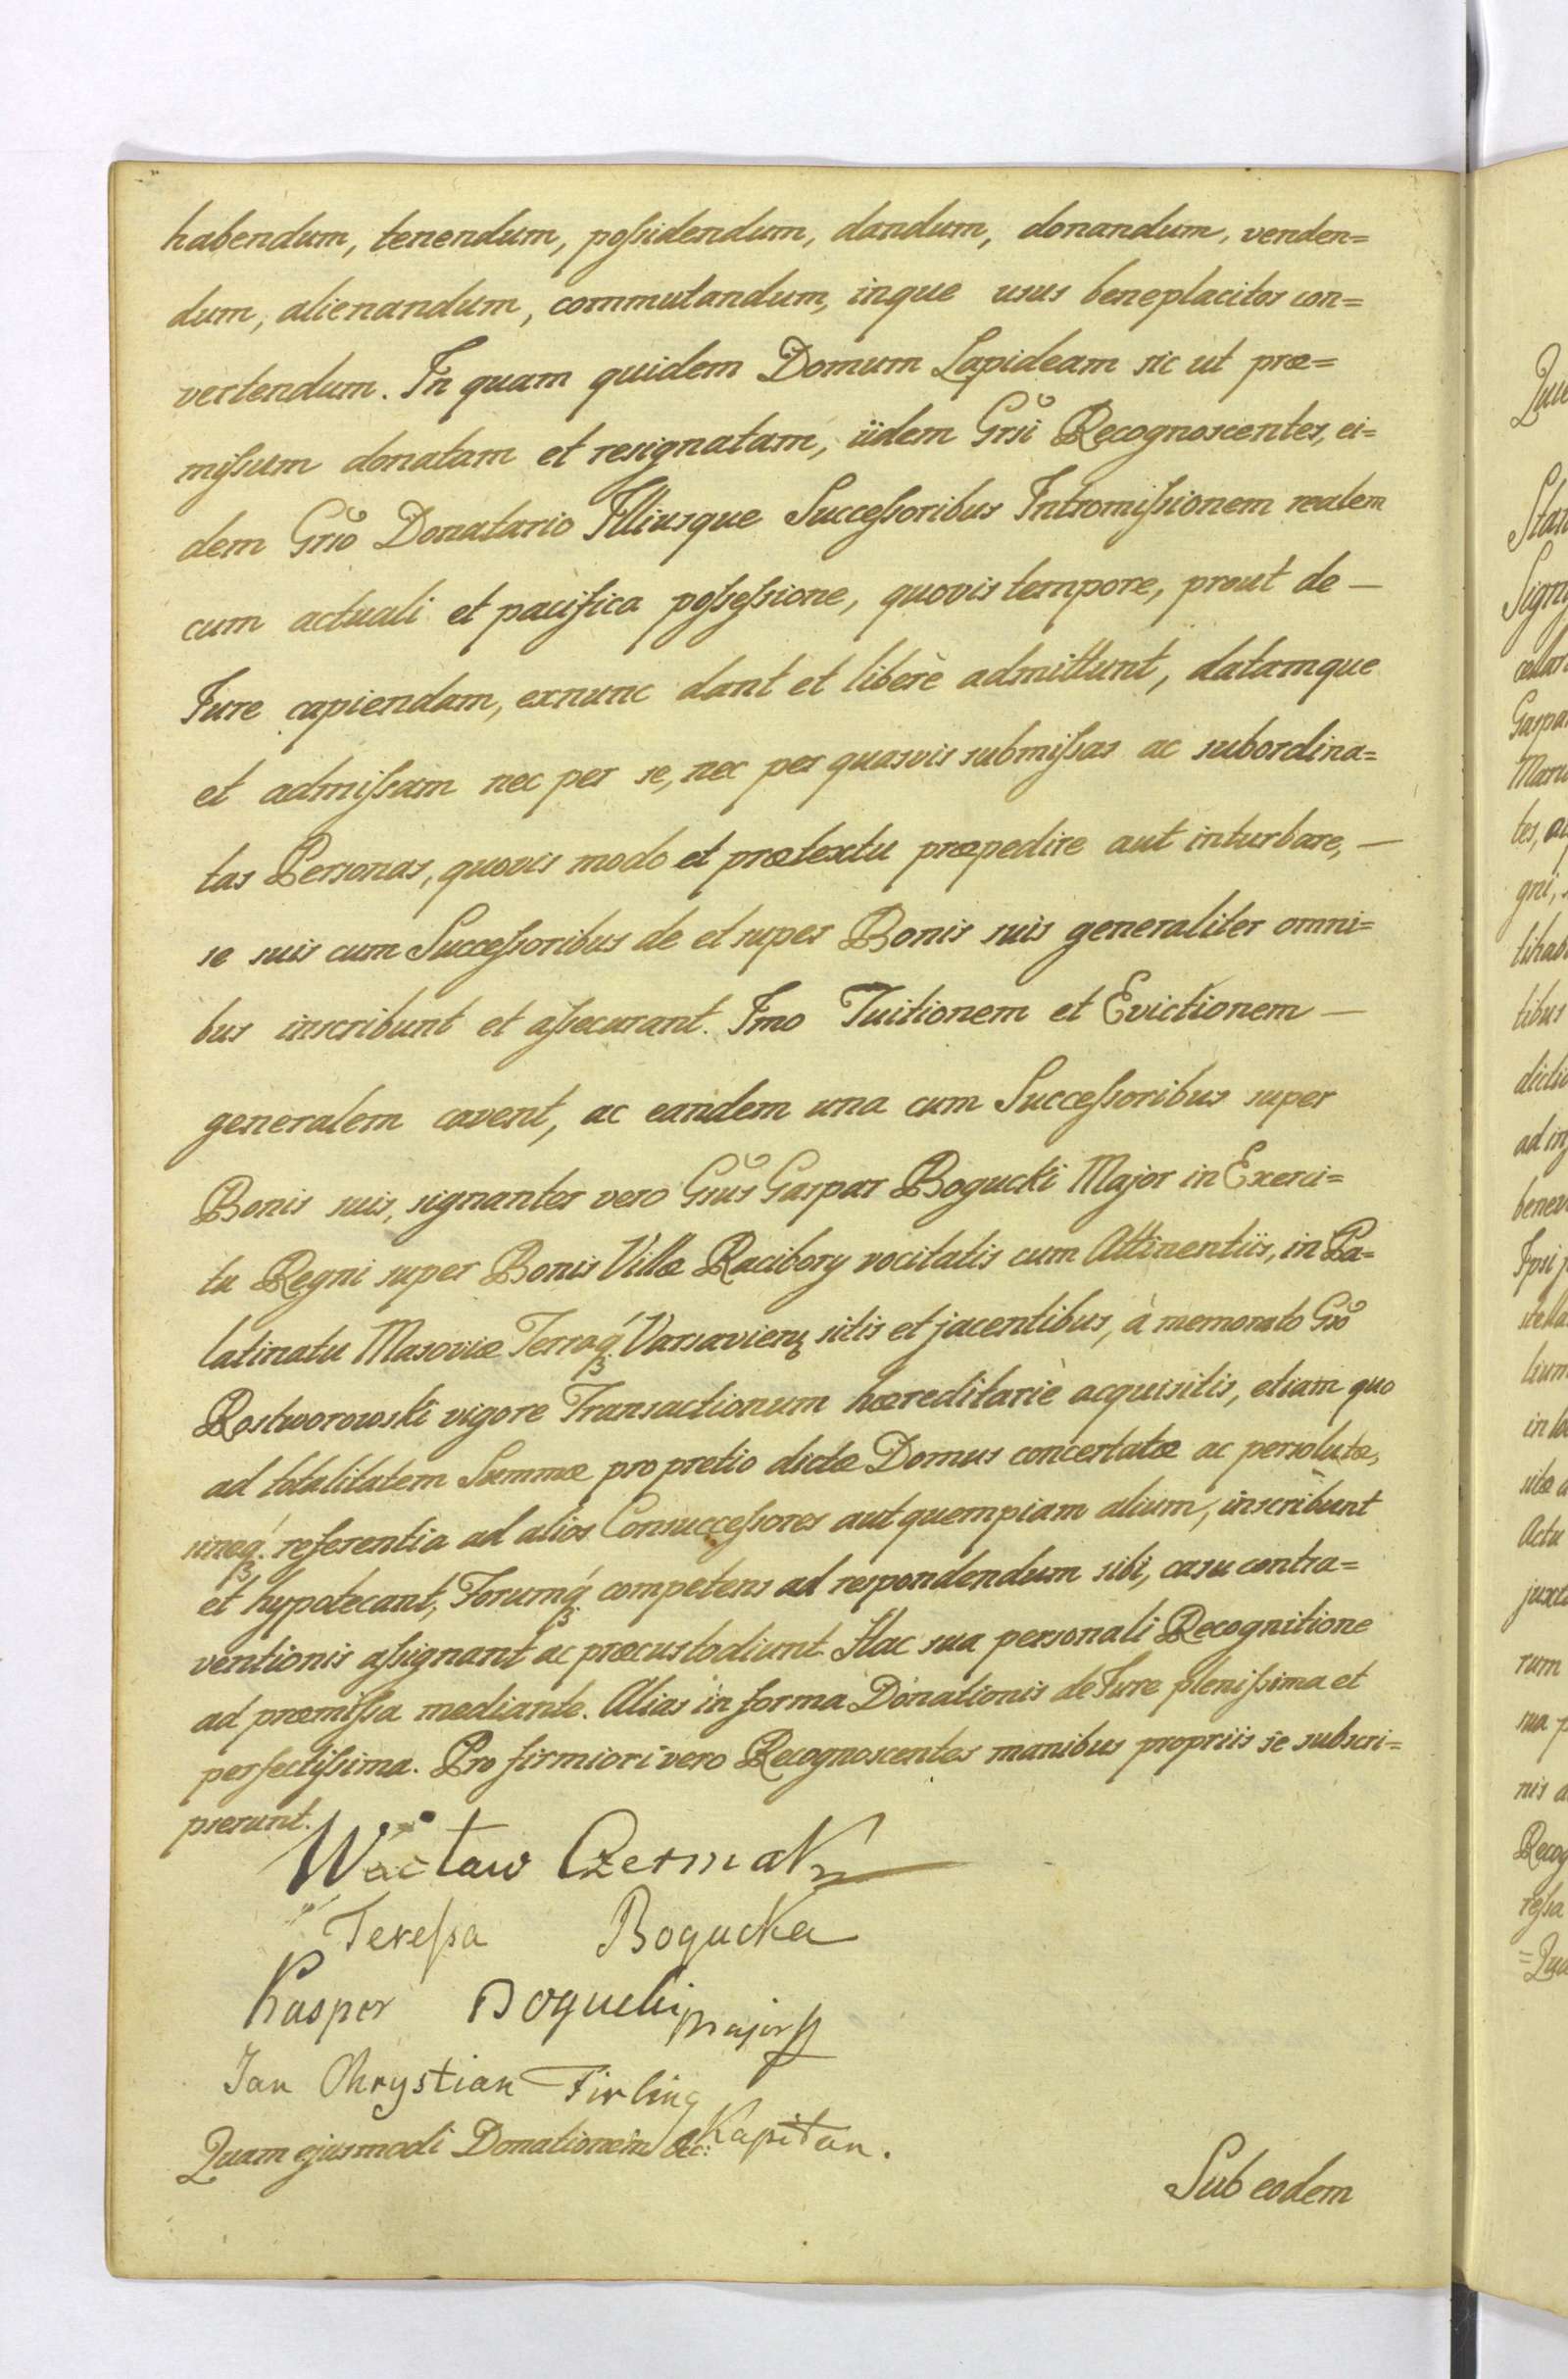 habendum, tenendum, poſsidendum, dandum, donandum, venden=
dum, alienandum, commutandum, inque usus beneplacitos con=
vertendum. In quam quidem Domum Lapideam sic ut præ=
miſsum donatam et resignatam, iidem Grsi Recognoscentes, ei=
dem Grso Donatario Illiusque Succeſsoribus Intromiſsionem realem
cum actuali et pacifica poſseſsione, quovis tempore, prout de —
Iure capiendam, exnunc dant et liberè admittunt, datamque
et admiſsam nec per se, nec per quasvis submiſsas ac subordina=
tas Personas, quovis modo et prætextu præpedire aut inturbare, —
se suis cum Succeſsoribus de et super Bonis suis generaliter omni=
bus inscribunt et aſsecurant. Imo Tuitionem et Evictionem —
generalem cavent, ac eandem una cum Succeſsoribus super
Bonis suis, signanter vero Gsus Gaspar Bogucki Major in Exerci=
tu Regni super Bonis Villæ Racibory vocitatis cum Attinentiis, in Pa=
latinatu Masoviæ Terraq́ꝫ Varsavienꝫ sitis et jacentibus, à memorato Gso
Rostworowski vigore Transactionum hæreditariè acquisitis, etiam quo
ad totalitatem Summæ pro pretio dictæ Domus concertatæ ac persolutæ,
sineq́ꝫ referentia ad alios Consucceſsores aut quempiam alium, inscribunt
et hypotecant, Forumq́ꝫ competens ad respondendum sibi, casu contra=
ventionis aſsignant ac præcustodiunt. Hac sua personali Recognitione
ad præmiſsa mediante. Alias in forma Donationis de Iure pleniſsima et
perfectiſsima. Pro firmiori vero Recognoscentes manibus propriis se subscri=
pserunt.
Wacław Czermak
Tereſsa Bogucka
Kasper Bogucki Major
Jan Chrystian Firling Kapitan.
Quam ejusmodi Donationem &c:
Sub eodem